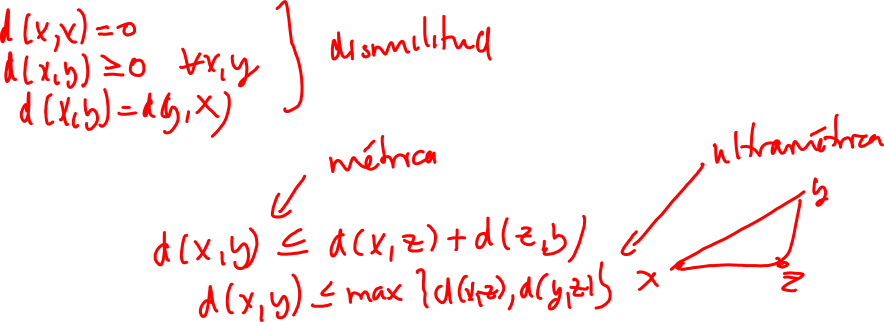 d(x,x)=0
d(x,y)≥0 ∀x,y
d(x,y)=d(y,x)
disimilitud
métrica
ultramétrica
d(x,y) ≤ d(x,z)+d(z,y)
d(x,y) ≤ max {d(x,z),d(y,z)}
x
y
z